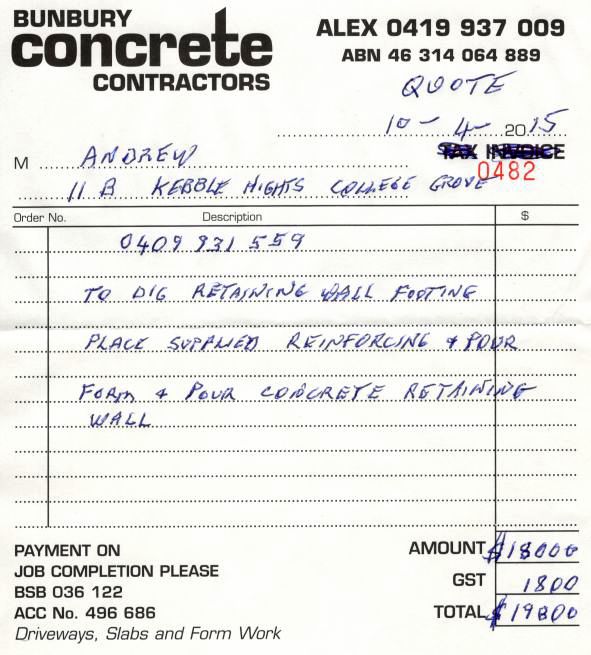 BUNBURY
concrete
CONTRACTORS
ALEX 0419 937 009
ABN 46 314 064 889
QUOTE
10 - 4 - 2015
TAX INVOICE
M ANDREW
0482
11 B KEBBLE HIGHTS COLLEGE GROVE
Order No. Description $
0409 931 559
TO DIG RETAINING WALL FOOTING
PLACE SUPPLIED REINFORCING & POUR
FORM & POUR CONCRETE RETAINING
WALL
PAYMENT ON
JOB COMPLETION PLEASE
BSB 036 122
ACC No. 496 686
Driveways, Slabs and Form Work
AMOUNT $18000
GST 1800
TOTAL $19800